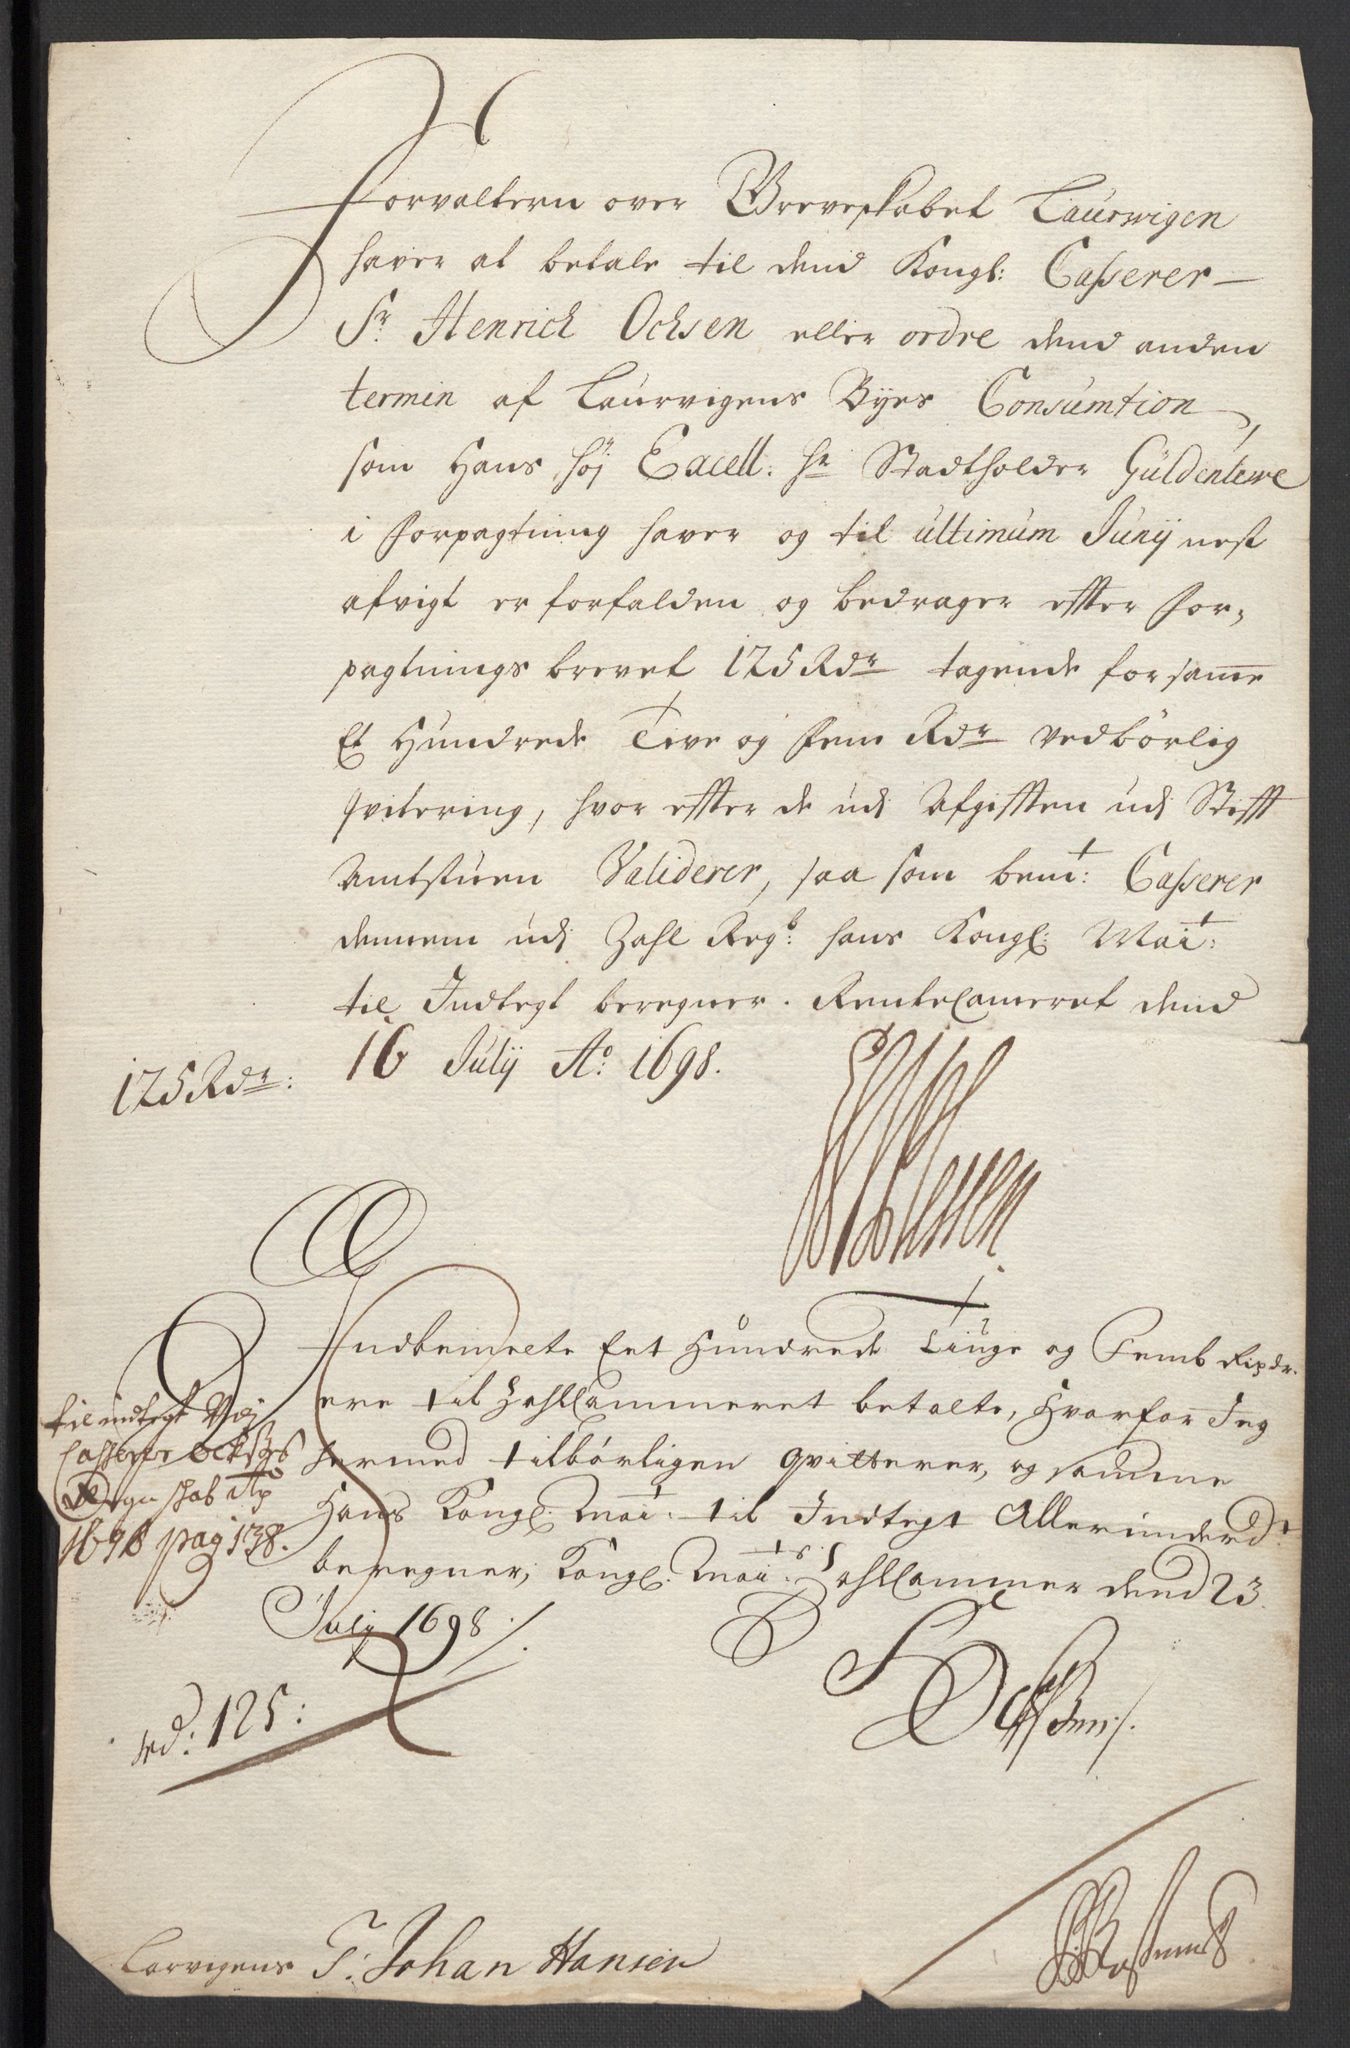 Forvaltern over Grevesskabet Laurwigen
haver at betale til dend Kongl: Casserer
Sr. Henrich Ochsen eller ordre dend anden
termin af Laurvigens Byes Consumtion,
som Hans høj Excell: Hr Stadtholder Güldenlewe
i forpagtning haver og til ultimum Junij nest
afvigt er forfalden og bedrager efter for-
pagtnings brevet 125 Rdr tagende for same
Et Hundrede Tive og fem Rdr vedbørlig
qvitering, hvor effter de udj Afgifften udj Stifft
Amtstuen Validerer, saa som bemt: Casserer
dennem udj Zahl Regb: hans Kongl: Mait:
til Indtegt beregner. RenteCameret dend
16 Julij Ao. 1698.
125 Rdr:
Indbemelte Eet Hundrede Tiuge og Femb Rixdr.
ere til ZahlCammeret betalte, Hvorfor Jeg
hermed tilbørligen qvitterer, og samme
Hans Kongl: Mait: til Indtegt Allerunderdt
beregner, Kongl: Maits: ZahlCammer dend 23.
Julij 1698 ./.
til indtegt Vdj
Casserer Ochsens
Regnskab Ao
1698 pag 138.
rd: 125:
HOchsen ./.
Larvigens T: Johan Hansen